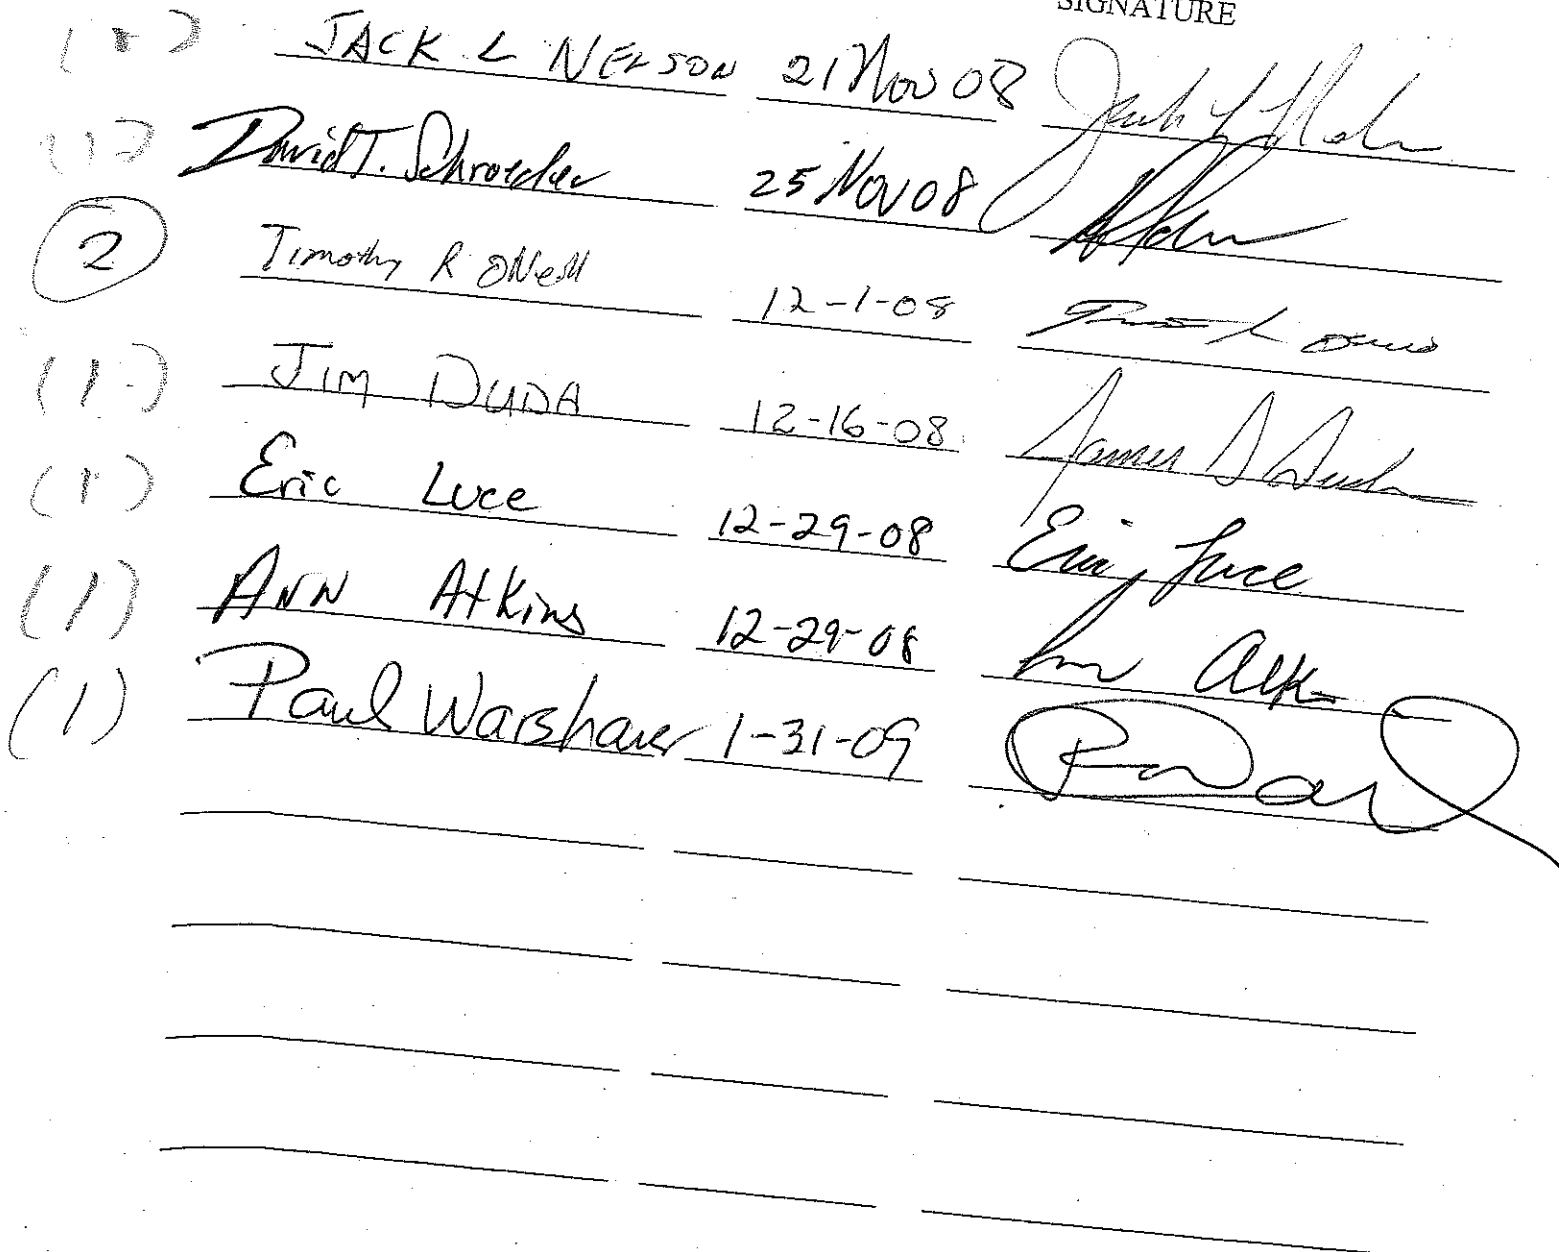 SIGNATURE
JACK L NELSON 21 Nov 08
(1) David T. Schroeder 25 Nov 08
2 Timothy R ONeill 12-1-08
(1) JIM DUDA 12-16-08 James D Duda
(1) Eric Luce 12-29-08 Eric Luce
(1) ANN Atkins 12-29-08 Ann Atk
(1) Paul Warshauer 1-31-09